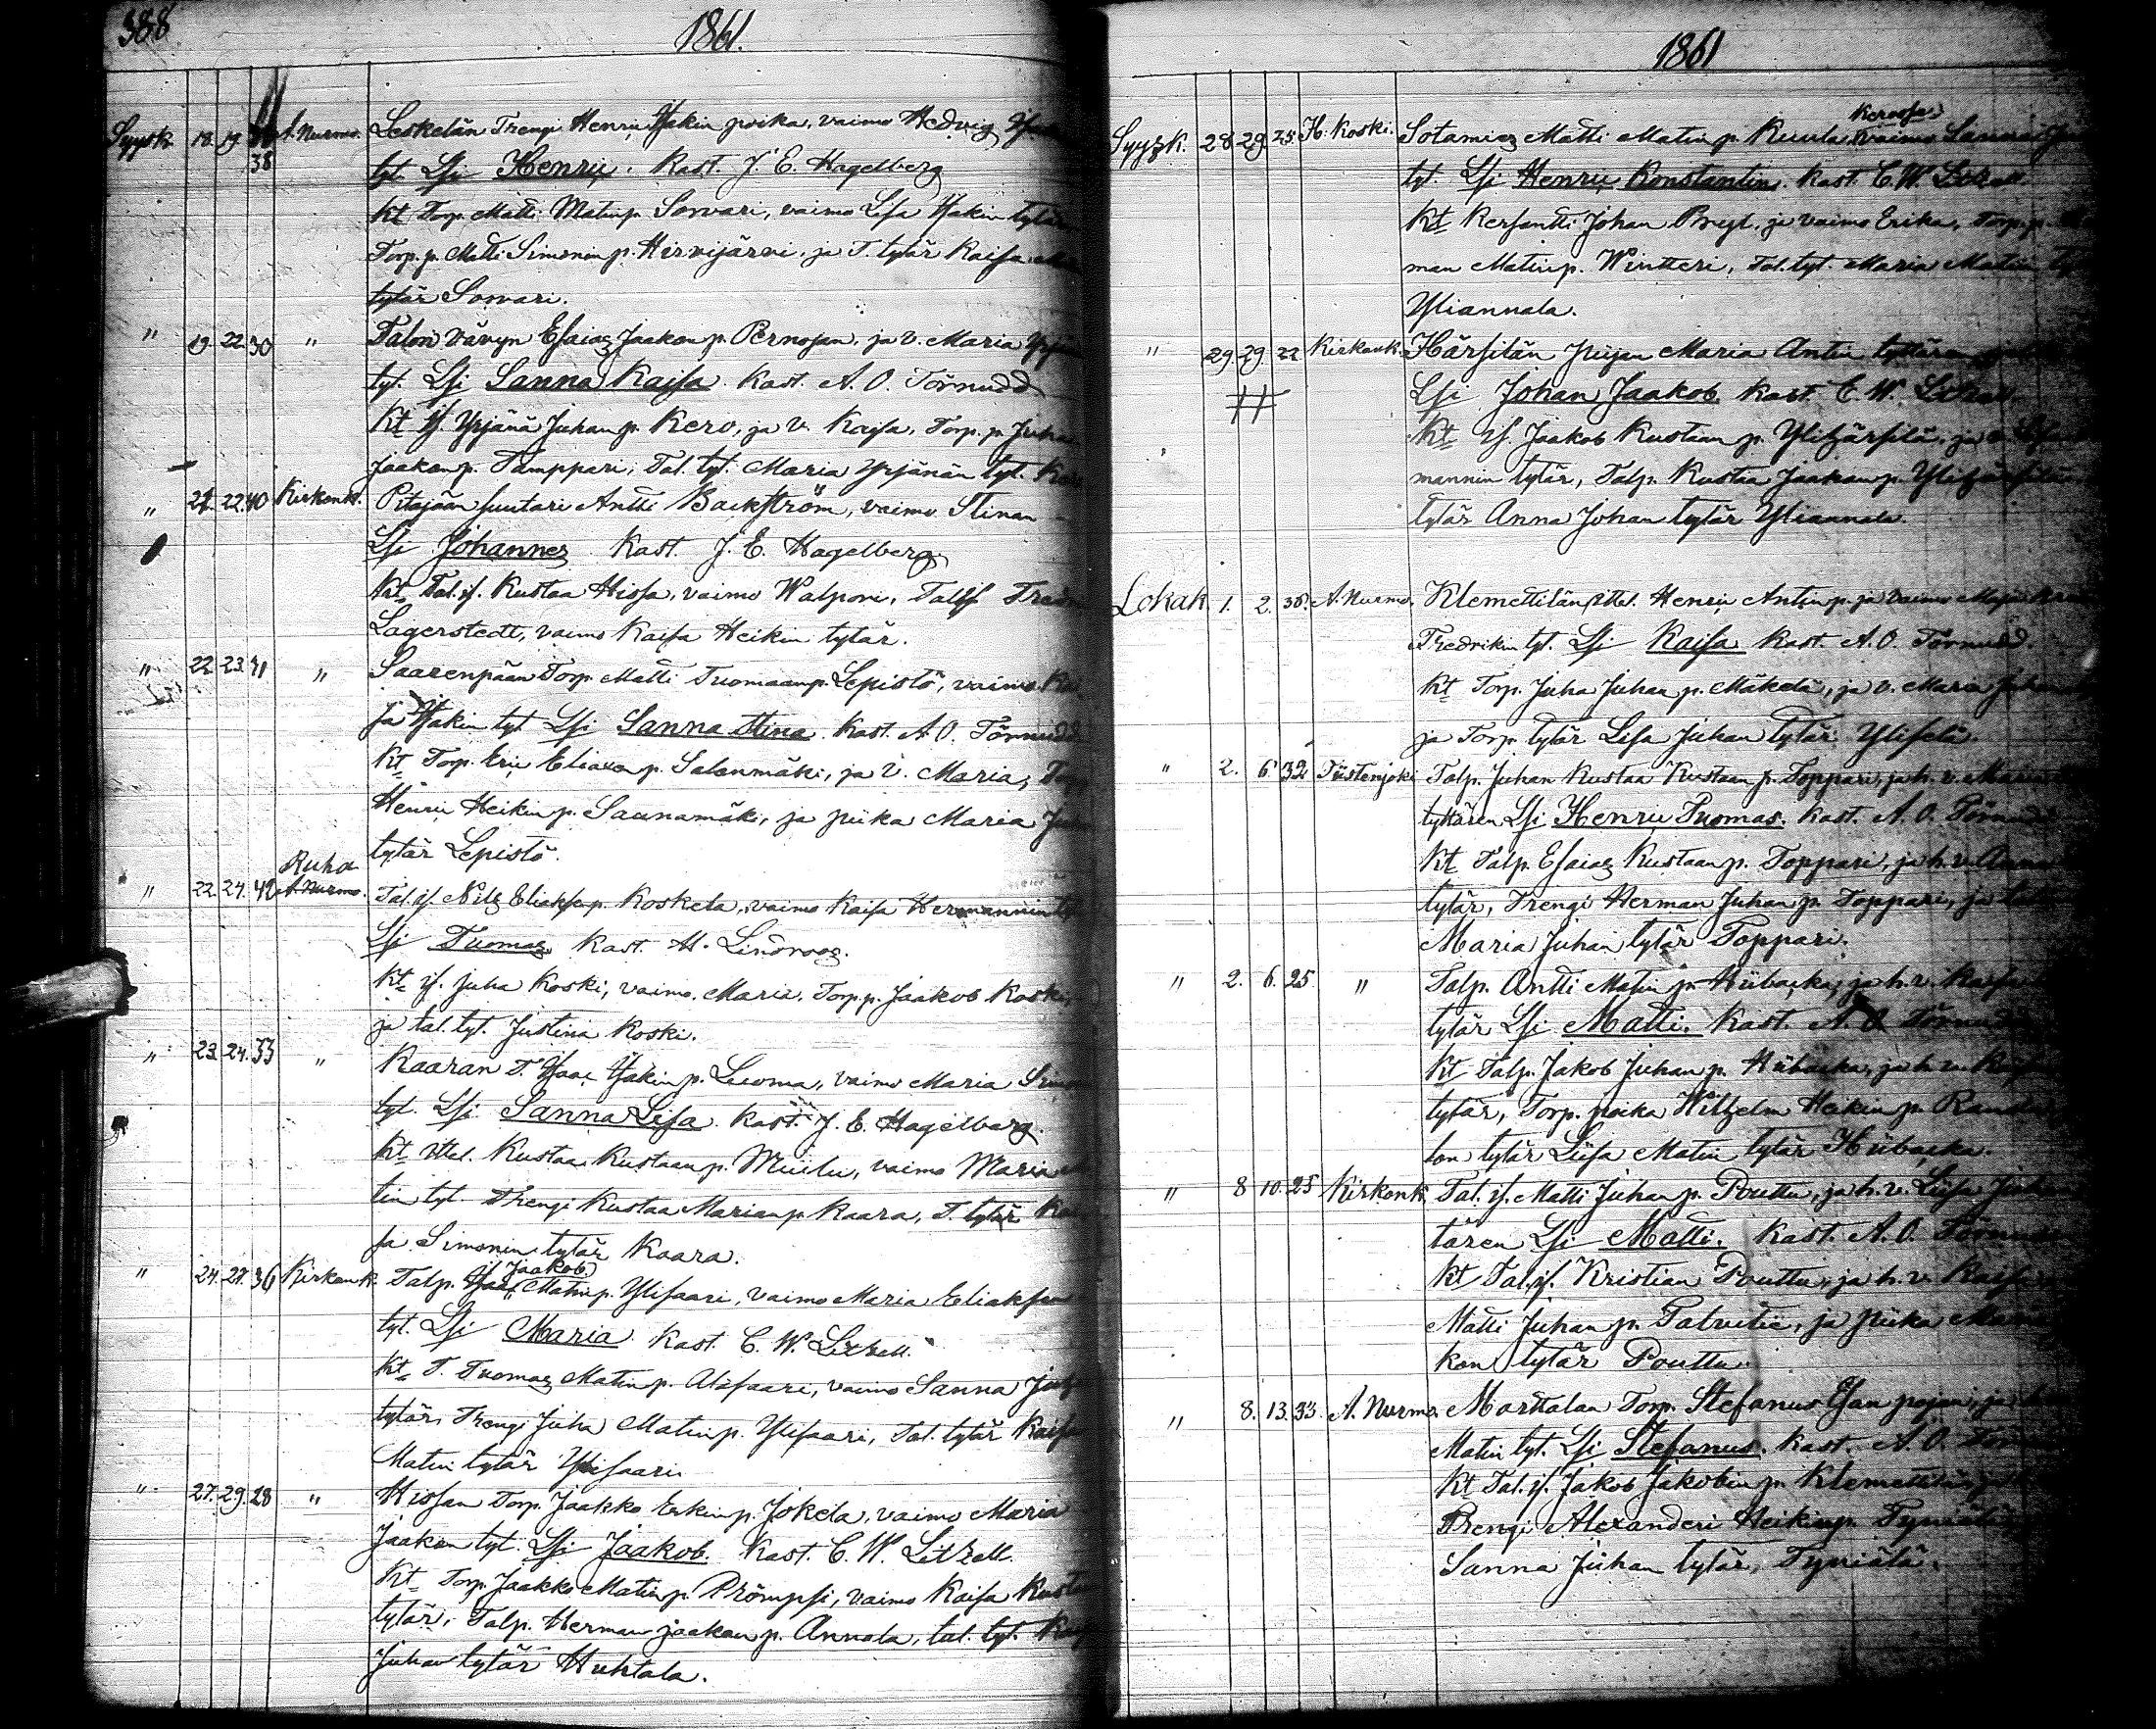 388
1861.
Syysk. 18. 19. 38 A. Nurmo. Leskelän Trengi Henric Isakin poika, vaimo Hedvig
tyt. Lsi Henric. Kast. J. E. Hagelberg
Kt Torp. Matti Matin p. Sorvari, vaimo Lisa Isakin tytär,
Torp. p. Matti Simonin p. Hirvijärvi, ja T. tytär Kaisa
tytär Sorvari.
" 19. 22. 30 " Talon vävyn Esaias Jaakon p. Pernojan, ja v. Maria
tyt. Lsi Sanna Kaisa. Kast. A. O. Törnudd
Kt if. Yrjänä Juhan p. Kero, ja v. Kaisa, Torp. p. Juha
Jaakon p. Tamppari, Tal. tyt. Maria Yrjänän tyt.
" 21. 22. 40 Kirkonk. Pitäjän suutari Antti Backström, vaimo Stinan
Lsi Johannes. Kast. J. E. Hagelberg
Kt Tal. if. Kustaa Hissa, vaimo Walpori,
Lagerstedt, vaimo Kaisa Heikin tytär.
" 22 23. 41 " Saarenpään Torp. Matti Tuomaan p. Lepistö, vaimo
sa Isakin tyt. Lsi Sanna Stina. Kast. A. O. Törnudd
Kt Torp. Eric Eliaxen p. Salonmäki, ja v. Maria,
Henric Heikin p. Saunamäki, ja piika Maria
tytär Lepistö.
Ruha
" 22. 24. 42 A. Nurmo. Tal. if. Nils Eliaksen p. Koskela, vaimo Kaisa Hermannin
Lsi Tuomas Kast. H. Lindroos.
Kt if. Juha Koski, vaimo Maria. Torp. p. Jaakob Koski,
ja tal. tyt. Justina Koski.
" 23. 24. 33 " Kaaran T. Isaac Isakin p. Luoma, vaimo Maria
tyt. Lsi Sanna Lisa. Kast. J. E. Hagelberg.
Kt Ittel. Kustaa Kustaan p. Muilu, vaimo Maria
tin tyt. Trengi Kustaa Marian p. Kaara, T. tytär
sa Simonin tytär Kaara.
Jaakob
" 24. 27. 36 Kirkonk. Talp. Matin p. Ylisaari, vaimo Maria Eliaksen
tyt. Lsi Maria. Kast. C. W. Litzell.
Kt T. Tuomas Matin p. Alasaari, vaimo Sanna
tytär, Trengi Juha Matin p. Ylisaari, Tal. tytär Kaisa
Matin tytär Ylisaari.
" 27. 29. 28 " Hissan Torp. Jaakko Erkin p. Jokela, vaimo Maria
Jaakon tyt. Lsi Jaakob. Kast. C. W. Litzell.
Kt Torp. Jaakko Matin p. Prömpsi, vaimo Kaisa
tytär, Talp. Herman Jaakon p. Annala, tal. tyt.
Juhan tytär Huhtala.
1861
Kerossa
Syysk. 28 29. 25. H. Koski. Sotamies Matti Matin p. Ruula, vaimo Sanna
tyt. Lsi Henric Konstantin. Kast. C. W. Litzell.
Kt Kersantti Johan Pregt, ja vaimo Erika, Torp. p.
man Matin p. Wintteri, Tal. tyt. Maria Matin
Yliannala.
" 29 29. 22 Kirkonk. Härsilän piijan Maria Antin tyttären
Lsi Johan Jaakob. Kast. C. W. Litzell.
Kt if. Jaakob Kustaan p. Ylihärsilä, ja v.
mannin tytär, Talp. Kustaa Jaakon p. Ylihärsilä,
tytär Anna Johan tytär Yliannala.
Lokak. 1. 2. 38. A. Nurmo. Klemettilän Ittel. Henric Antin p. ja vaimo
Fredrikin tyt. Lsi Kaisa Kast. A. O. Törnudd.
Kt Torp. Juha Juhan p. Mäkelä, ja v. Maria
ja Torp. tytär Lisa Juhan tytär Yliselä.
" 2. 6. 32 Tiistenjoki Talp. Juhan Kustaa Kustaan p. Toppari, ja h. v.
tyttären Lsi Henric Tuomas. Kast. A. O. Törnudd
Kt Talp. Esaias Kustaan p. Toppari, ja h. v. Anna
tytär, Trengi Herman Juhan p. Toppari, ja
Maria Juhan tytär Toppari.
" 2. 6. 25. " Talp. Antti Matin p. Hiibacka, ja h. v. Kaisa
tytär Lsi Matti. Kast. A. O. Törnudd
Kt Talp. Jakob Juhan p. Hiibacka, ja h. v.
tytär, Torp. poika Wilhelm Heikin p.
lon tytär Liisa Matin tytär Hiibacka.
" 8 10. 25 Kirkonk. Tal. if. Matti Juhan p. Pouttu, ja h. v. Liisa
tären Lsi Matti. Kast. A. O. Törnudd
Kt Tal. if. Kristian Pouttu, ja h. v. Kaisa
Matti Juhan p. ja piika
kon tytär Pouttu.
" 8. 13. 33. A. Nurmo. Marttalan Torp. Stefanus Esan pojan, ja
Matin tyt. Lsi Stefanus. Kast. A. O.
Kt Tal. if. Jakob Jakobin p. Klemettilä,
Trengi Alexanderi Heikin p.
Sanna Juhan tytär,